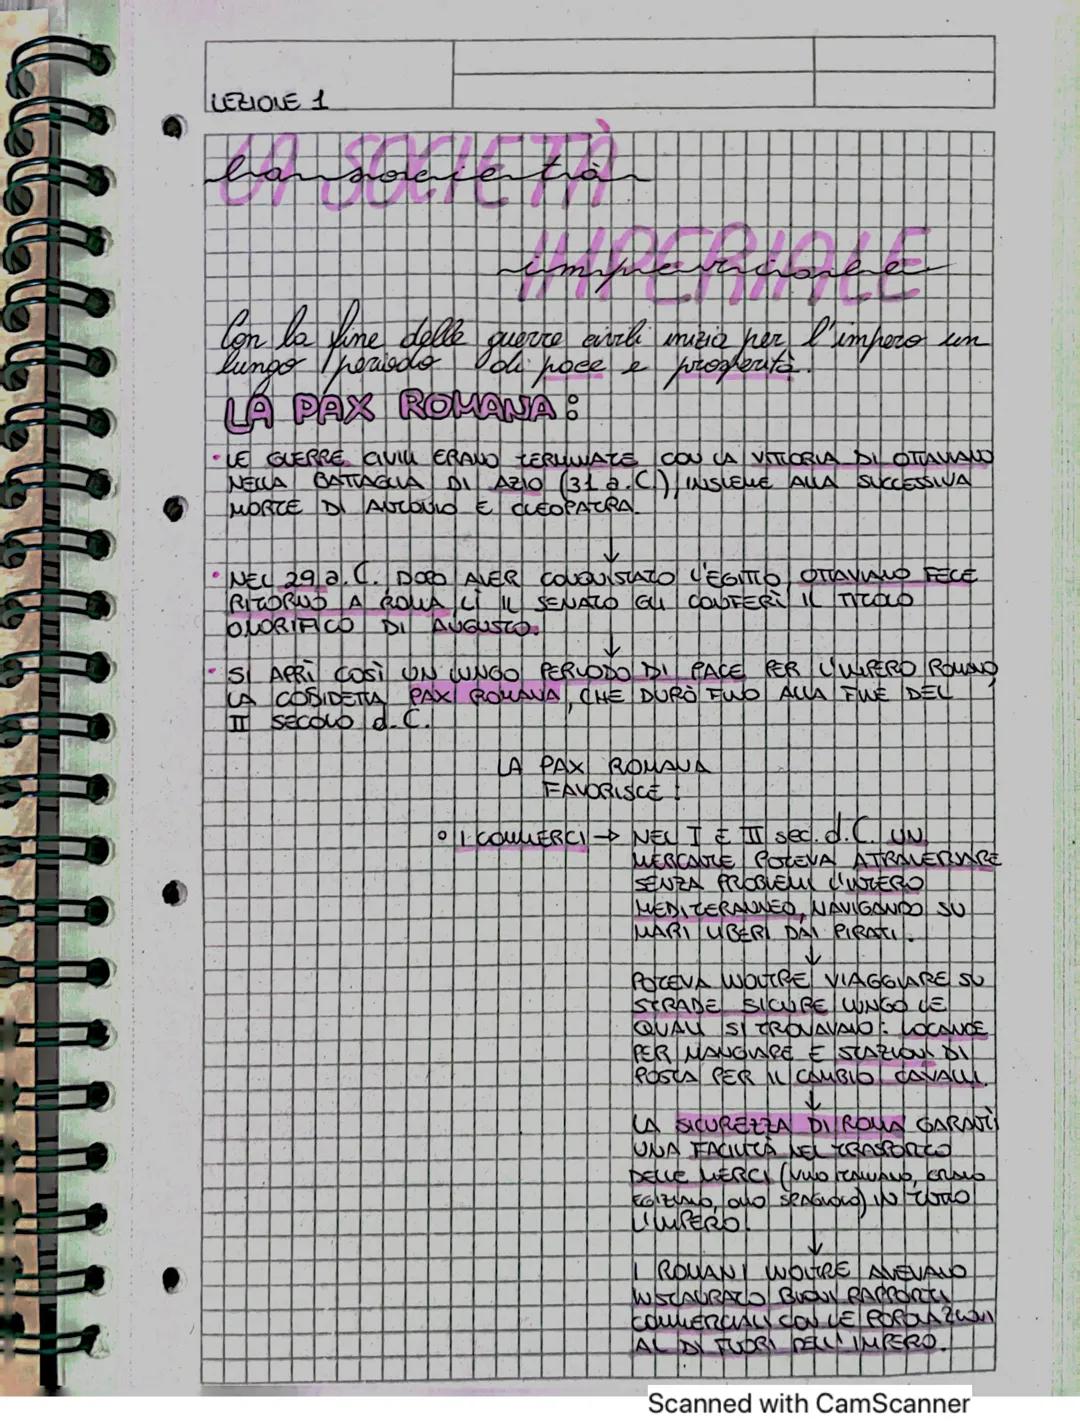 LEZIONE 1
LA SOCIETÀ
la società
IMPERIALE
imperiale
Con la fine delle guerre civili inizia per l'impero un
lungo periodo di pace e prosperità.
LA PAX ROMANA:
• LE GUERRE CIVILI ERANO TERMINATE CON LA VITTORIA DI OTTAVIANO
NELLA BATTAGLIA DI AZIO (31 a.C.), INSIEME ALLA SUCCESSIVA
MORTE DI ANTONIO E CLEOPATRA.
↓
• NEL 29 a.C. DOPO AVER CONQUISTATO L'EGITTO OTTAVIANO FECE
RITORNO A ROMA LÌ IL SENATO GLI CONFERÌ IL TITOLO
ONORIFICO DI AUGUSTO.
↓
• SI APRÌ COSÌ UN LUNGO PERIODO DI PACE PER L'IMPERO ROMANO,
LA COSIDETTA PAX ROMANA, CHE DURÒ FINO ALLA FINE DEL
II SECOLO d.C.
LA PAX ROMANA
FAVORISCE:
° I COMMERCI → NEL I E II sec. d.C. UN
MERCANTE POTEVA ATRAVERSARE
SENZA PROBLEMI L'INTERO
MEDITERANNEO, NAVIGANDO SU
MARI LIBERI DAI PIRATI.
↓
POTEVA INOLTRE VIAGGIARE SU
STRADE SICURE LUNGO LE
QUALI SI TROVAVANO: LOCANDE
PER MANGIARE E STAZIONI DI
POSTA PER IL CAMBIO CAVALLI.
↓
LA SICUREZZA DI ROMA GARANTÌ
UNA FACILITÀ NEL TRASPORTO
DELLE MERCI (VINO ITALIANO, GRANO
EGIZIANO, OLIO SPAGNOLO) IN TUTTO
L'IMPERO.
↓
I ROMANI INOLTRE AVEVANO
INSTAURATO BUONI RAPPORTI
COMMERCIALI CON LE POPOLAZIONI
AL DI FUORI DELL'IMPERO.
Scanned with CamScanner